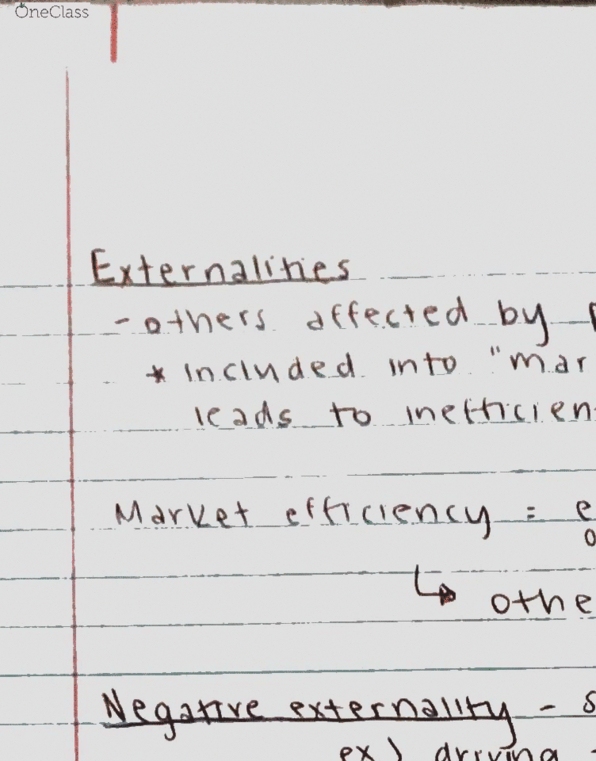 OneClass
Externalities
- others affected by
* included into "mar
leads to inefficien
Market efficiency = e
o
↳ othe
Negative externality - s
ex) driving -